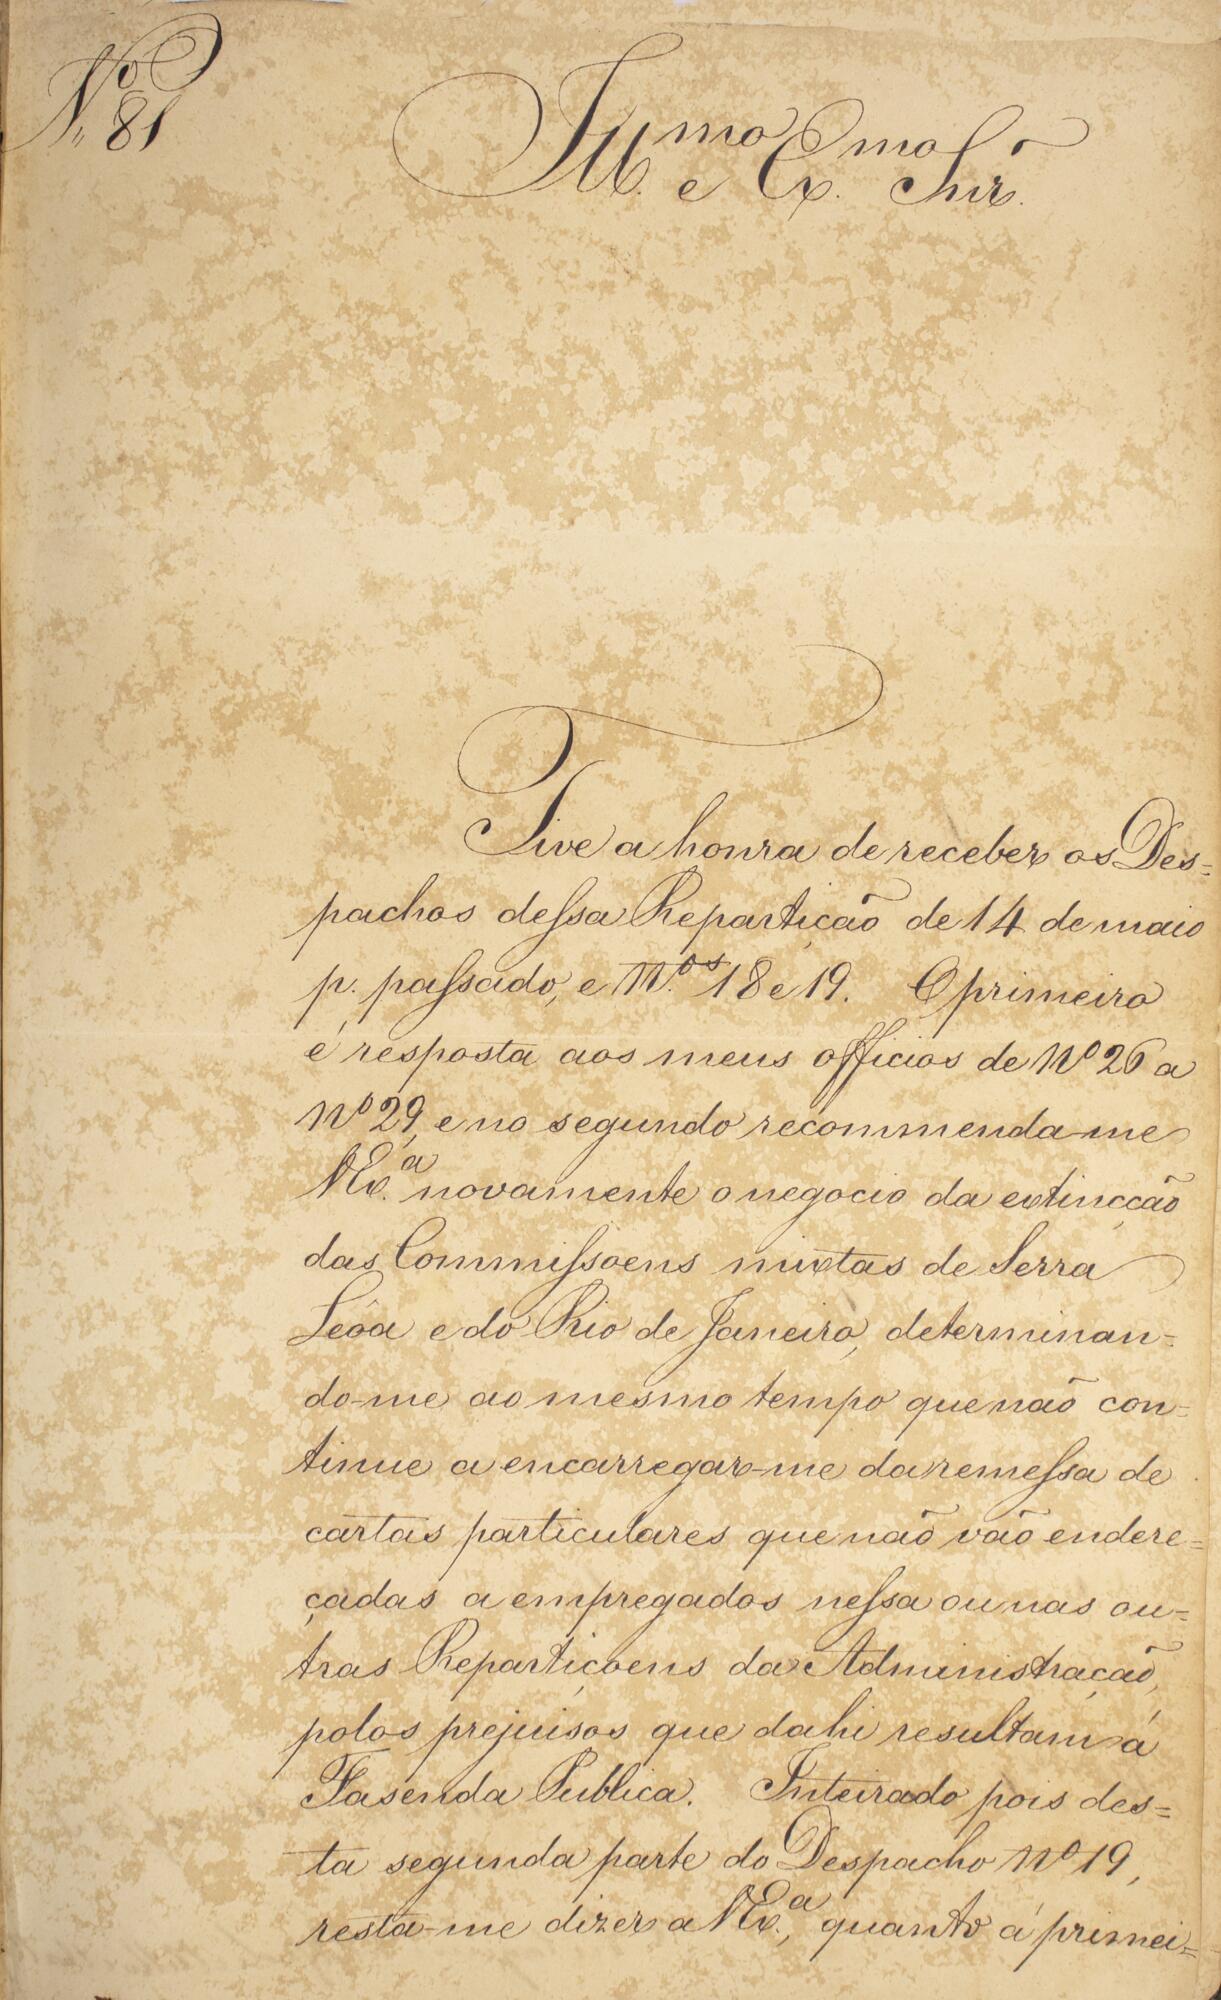 N.º 81
Ill.mo e Ex.mo Snr.
Tive a honra de receber os Des=
pachos dessa Repartição de 14 de maio
p. passado, e N.os 18 e 19. O primeiro
é resposta aos meus officios de Nº 26 a
Nº 29, e no segundo recommenda-me
VEx.a novamente o negocio da extincção
das Commissoens mixtas de Serra
Leôa e do Rio de Janeiro, determinan=
do-me ao mesmo tempo que não con=
tinue a encarregar-me da remessa de
cartas particulares que não vão endere=
çadas a empregados nessa ou nas ou=
tras Repartiçoens da Administração,
polos prejuisos que dahi resultam á
Fasenda Publica. Inteirado pois des=
ta segunda parte do Despacho Nº 19,
resta-me dizer a VEx.a, quanto á primei=